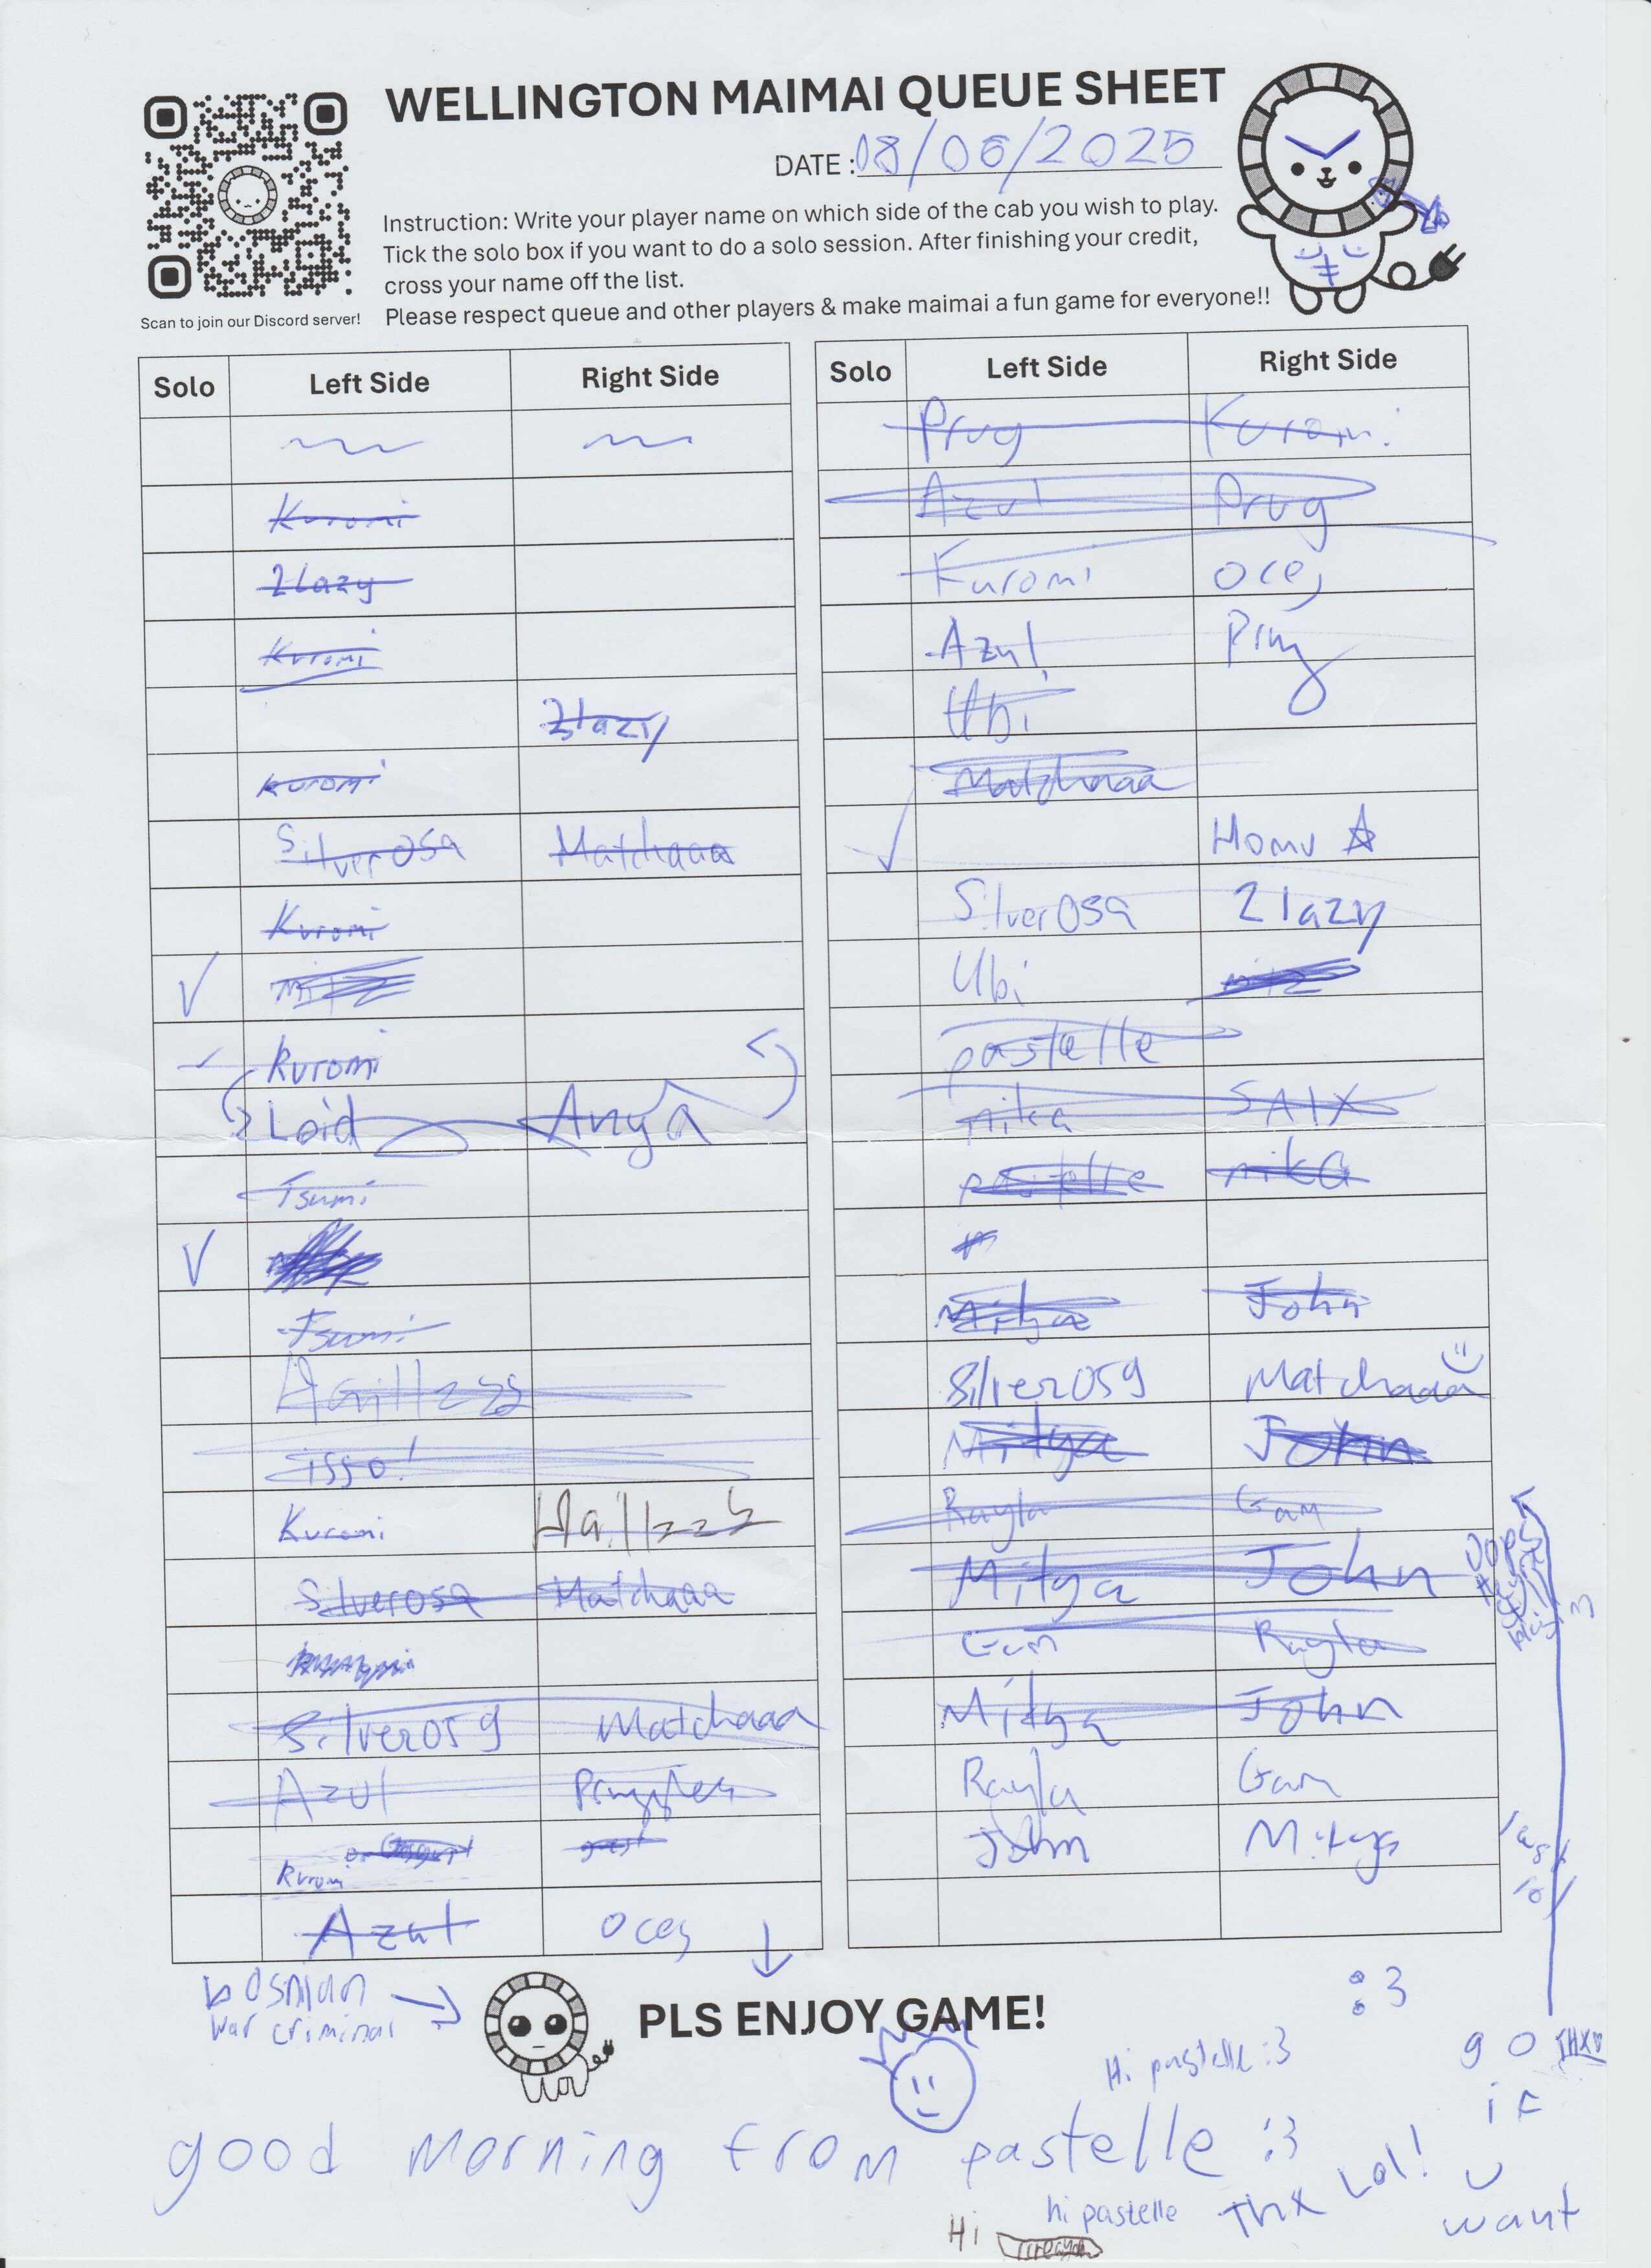 WELLINGTON MAIMAI QUEUE SHEET
DATE : 08/06/2025
Instruction: Write your player name on which side of the cab you wish to play.
Tick the solo box if you want to do a solo session. After finishing your credit,
cross your name off the list.
Please respect queue and other players & make maimai a fun game for everyone!!
Scan to join our Discord server!
Solo Left Side Right Side
Kuromi
2lazy
Kuromi
2lazy
Kuromi
Silverosa Matchaaa
Kuromi
✓
Kuromi
Loid Anya
Tsumi
✓
Tsumi
isso!
Kuromi
Silverosa Matchaaa
Silverosg Matchaaa
Azul
Kuromi
Azul oces
Solo Left Side Right Side
Prug Kuromi
Azul Prug
Kuromi
Azul
Ubi
Matchaaa
✓ Homu ☆
Silverosa 2lazy
Ubi
pastelle
nika SAIX
pastelle nika
Mitya John
Silverosg Matchaaa
Mitya John
Rayla Gam
Mitya John
Gam Rayla
Mitya John
Rayla Gam
John Mitya
bosnian
war criminal
PLS ENJOY GAME!
:3
Hi pastelle :3
go THX
if
u
want
good morning from pastelle :3
Lol!
hi pastelle THX
Hi